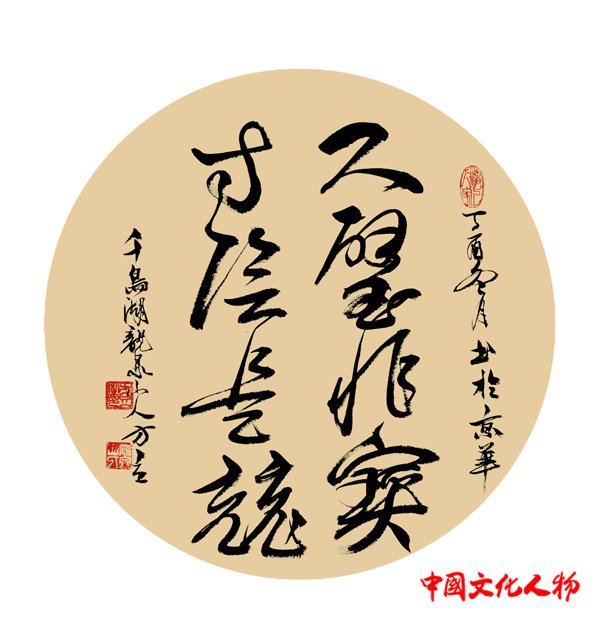 丁酉冬月 書於京華
尺璧非寶
寸陰是競
千島湖龍泉山人方立
中國文化人物